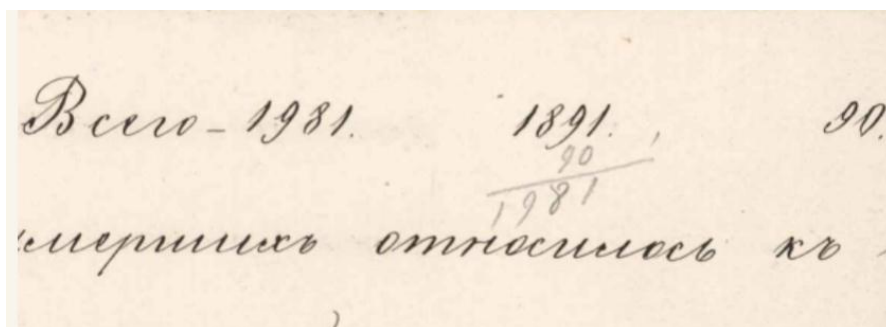 Всего – 1981. 1891. 90.
90
1981
умершихъ относилось къ